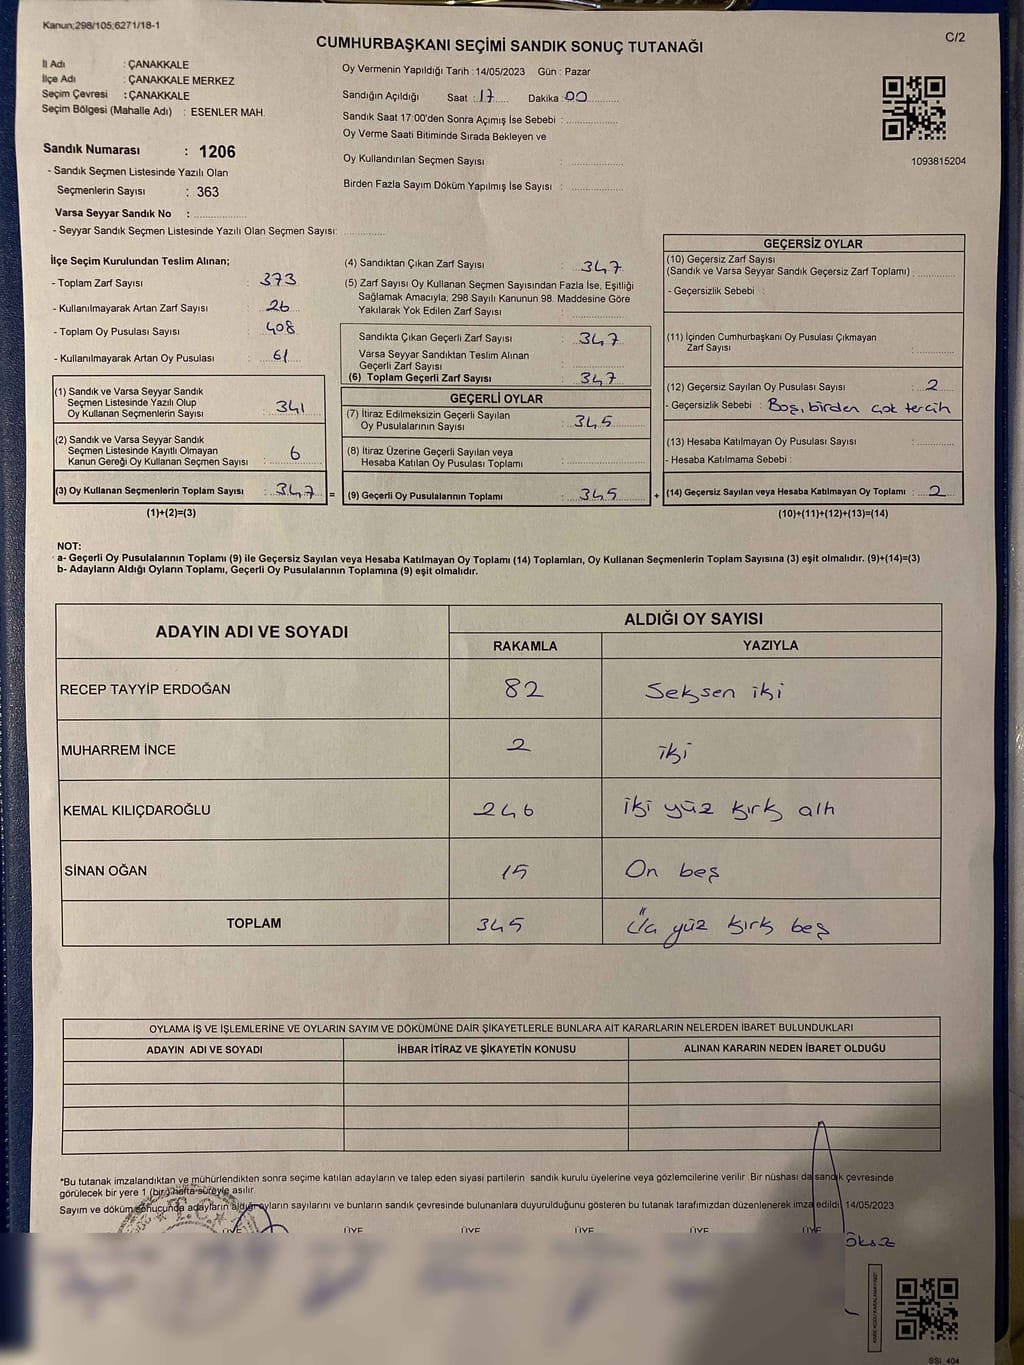 Kanun;298/105;6271/18-1
C/2
CUMHURBAŞKANI SEÇİMİ SANDIK SONUÇ TUTANAĞI
İl Adı : ÇANAKKALE
İlçe Adı : ÇANAKKALE MERKEZ
Seçim Çevresi : ÇANAKKALE
Seçim Bölgesi (Mahalle Adı) : ESENLER MAH.
Sandık Numarası : 1206
- Sandık Seçmen Listesinde Yazılı Olan
Seçmenlerin Sayısı : 363
Varsa Seyyar Sandık No :
- Seyyar Sandık Seçmen Listesinde Yazılı Olan Seçmen Sayısı:
Oy Vermenin Yapıldığı Tarih : 14/05/2023 Gün : Pazar
Sandığın Açıldığı Saat : 17 Dakika : 00
Sandık Saat 17:00'den Sonra Açımış İse Sebebi :
Oy Verme Saati Bitiminde Sırada Bekleyen ve
Oy Kullandırılan Seçmen Sayısı :
Birden Fazla Sayım Döküm Yapılmış İse Sayısı :
1093815204
İlçe Seçim Kurulundan Teslim Alınan;
- Toplam Zarf Sayısı : 373
- Kullanılmayarak Artan Zarf Sayısı : 26
- Toplam Oy Pusulası Sayısı : 408
- Kullanılmayarak Artan Oy Pusulası : 61
(1) Sandık ve Varsa Seyyar Sandık
Seçmen Listesinde Yazılı Olup
Oy Kullanan Seçmenlerin Sayısı : 341
(2) Sandık ve Varsa Seyyar Sandık
Seçmen Listesinde Kayıtlı Olmayan
Kanun Gereği Oy Kullanan Seçmen Sayısı : 6
(3) Oy Kullanan Seçmenlerin Toplam Sayısı : 347 =
(1)+(2)=(3)
(4) Sandıktan Çıkan Zarf Sayısı : 347
(5) Zarf Sayısı Oy Kullanan Seçmen Sayısından Fazla İse, Eşitliği
Sağlamak Amacıyla; 298 Sayılı Kanunun 98. Maddesine Göre
Yakılarak Yok Edilen Zarf Sayısı :
Sandıkta Çıkan Geçerli Zarf Sayısı : 347
Varsa Seyyar Sandıktan Teslim Alınan
Geçerli Zarf Sayısı :
(6) Toplam Geçerli Zarf Sayısı : 347
GEÇERLİ OYLAR
(7) İtiraz Edilmeksizin Geçerli Sayılan
Oy Pusulalarının Sayısı : 345
(8) İtiraz Üzerine Geçerli Sayılan veya
Hesaba Katılan Oy Pusulası Toplamı :
(9) Geçerli Oy Pusulalarının Toplamı : 345 +
GEÇERSİZ OYLAR
(10) Geçersiz Zarf Sayısı
(Sandık ve Varsa Seyyar Sandık Geçersiz Zarf Toplamı) :
- Geçersizlik Sebebi :
(11) İçinden Cumhurbaşkanı Oy Pusulası Çıkmayan
Zarf Sayısı :
(12) Geçersiz Sayılan Oy Pusulası Sayısı : 2
- Geçersizlik Sebebi : Boş, birden çok tercih
(13) Hesaba Katılmayan Oy Pusulası Sayısı :
- Hesaba Katılmama Sebebi :
(14) Geçersiz Sayılan veya Hesaba Katılmayan Oy Toplamı : 2
(10)+(11)+(12)+(13)=(14)
NOT:
a- Geçerli Oy Pusulalarının Toplamı (9) ile Geçersiz Sayılan veya Hesaba Katılmayan Oy Toplamı (14) Toplamları, Oy Kullanan Seçmenlerin Toplam Sayısına (3) eşit olmalıdır. (9)+(14)=(3)
b- Adayların Aldığı Oyların Toplamı, Geçerli Oy Pusulalarının Toplamına (9) eşit olmalıdır.
ADAYIN ADI VE SOYADI
ALDIĞI OY SAYISI
RAKAMLA YAZIYLA
RECEP TAYYİP ERDOĞAN 82 Seksen iki
MUHARREM İNCE 2 iki
KEMAL KILIÇDAROĞLU 246 iki yüz kırk altı
SİNAN OĞAN 15 On beş
TOPLAM 345 Üç yüz kırk beş
OYLAMA İŞ VE İŞLEMLERİNE VE OYLARIN SAYIM VE DÖKÜMÜNE DAİR ŞİKAYETLERLE BUNLARA AİT KARARLARIN NELERDEN İBARET BULUNDUKLARI
ADAYIN ADI VE SOYADI İHBAR İTİRAZ VE ŞİKAYETİN KONUSU ALINAN KARARIN NEDEN İBARET OLDUĞU
*Bu tutanak imzalandıktan ve mühürlendikten sonra seçime katılan adayların ve talep eden siyasi partilerin sandık kurulu üyelerine veya gözlemcilerine verilir. Bir nüshası da sandık çevresinde
görülecek bir yere 1 (bir) hafta süreyle asılır.
Sayım ve döküm sonucunda adayların aldığı oyların sayılarını ve bunların sandık çevresinde bulunanlara duyurulduğunu gösteren bu tutanak tarafımızdan düzenlenerek imza edildi. 14/05/2023
ÜYE ÜYE ÜYE ÜYE ÜYE ÜYE
T.C.
SSİ_404